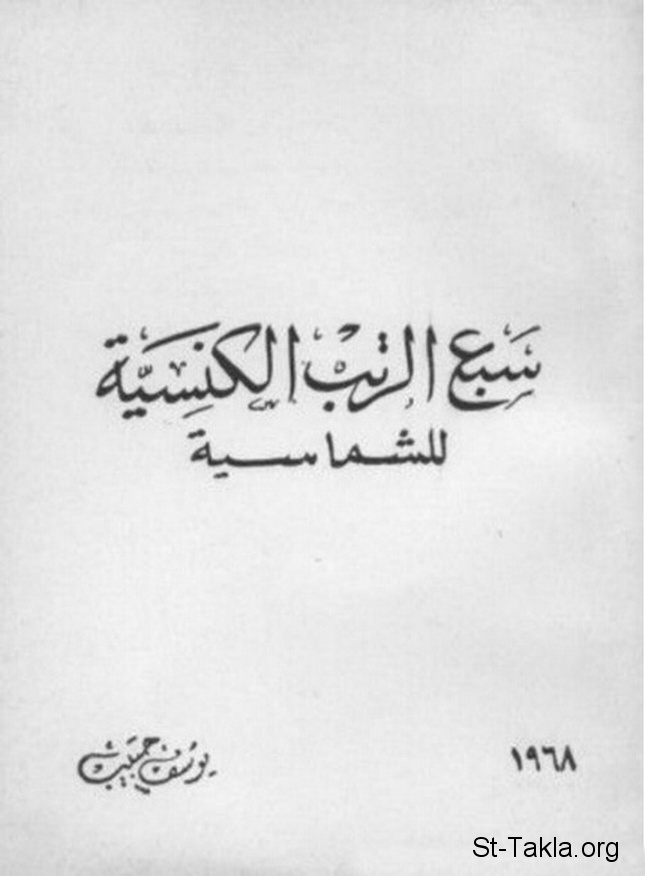 سبع الرتب الكنسية
للشماسية
يوسف حبيب
١٩٦٨
St-Takla.org